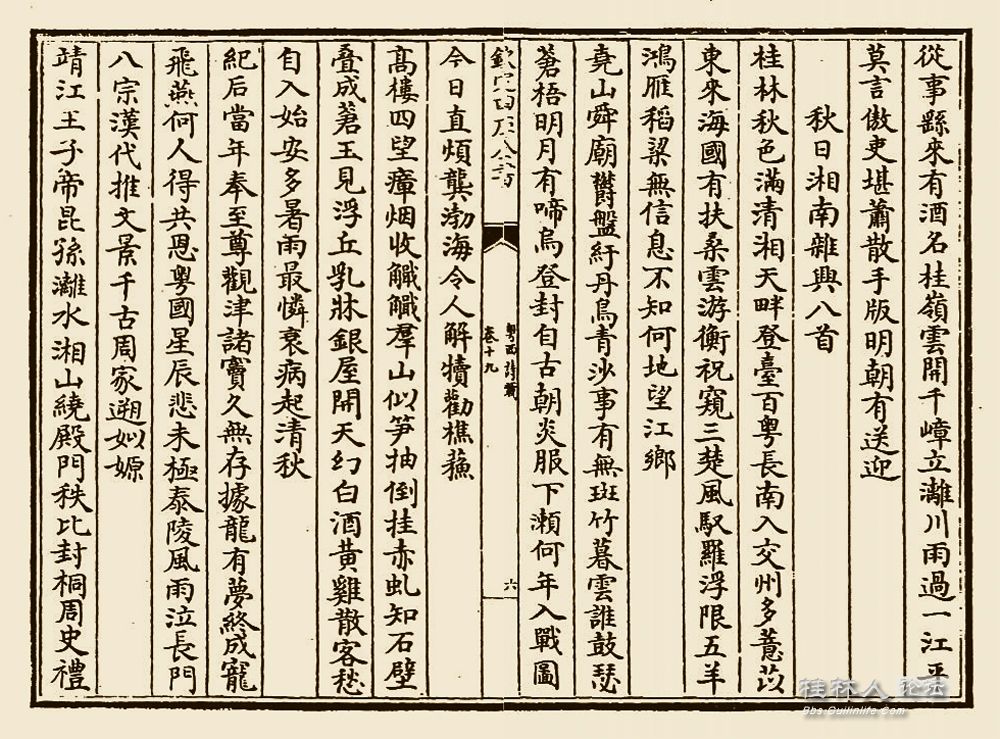 從事縣來有酒名桂嶺雲開千嶂立灕川雨過一江平
莫言傲吏堪蕭散手版明朝有送迎
秋日湘南雜興八首
桂林秋色滿清湘天畔登臺百粵長南入交州多薏苡
東來海國有扶桑雲游衡祝窺三楚風馭羅浮限五羊
鴻雁稻粱無信息不知何地望江鄉
堯山舜廟鬱盤紆丹鳥青沙事有無斑竹暮雲誰鼓瑟
蒼梧明月有啼烏登封自古朝炎服下瀨何年入戰圖
欽定四庫全書
粵西詩載
卷十九
六
今日直煩龔渤海令人解犢勸樵蘓
髙樓四望瘴烟收觱觱羣山似笋抽倒挂赤虬知石壁
叠成蒼玉見浮丘乳牀銀屋開天幻白酒黃雞散客愁
自入始安多暑雨最憐衰病起清秋
紀后當年奉至尊觀津諸竇久無存據龍有夢終成寵
飛燕何人得共恩粵國星辰悲未極泰陵風雨泣長門
八宗漢代推文景千古周家遡姒嫄
靖江王子帝昆孫灕水湘山繞殿門秩比封桐周史禮
桂林人 论坛
Bbs.Guilinlife.Com